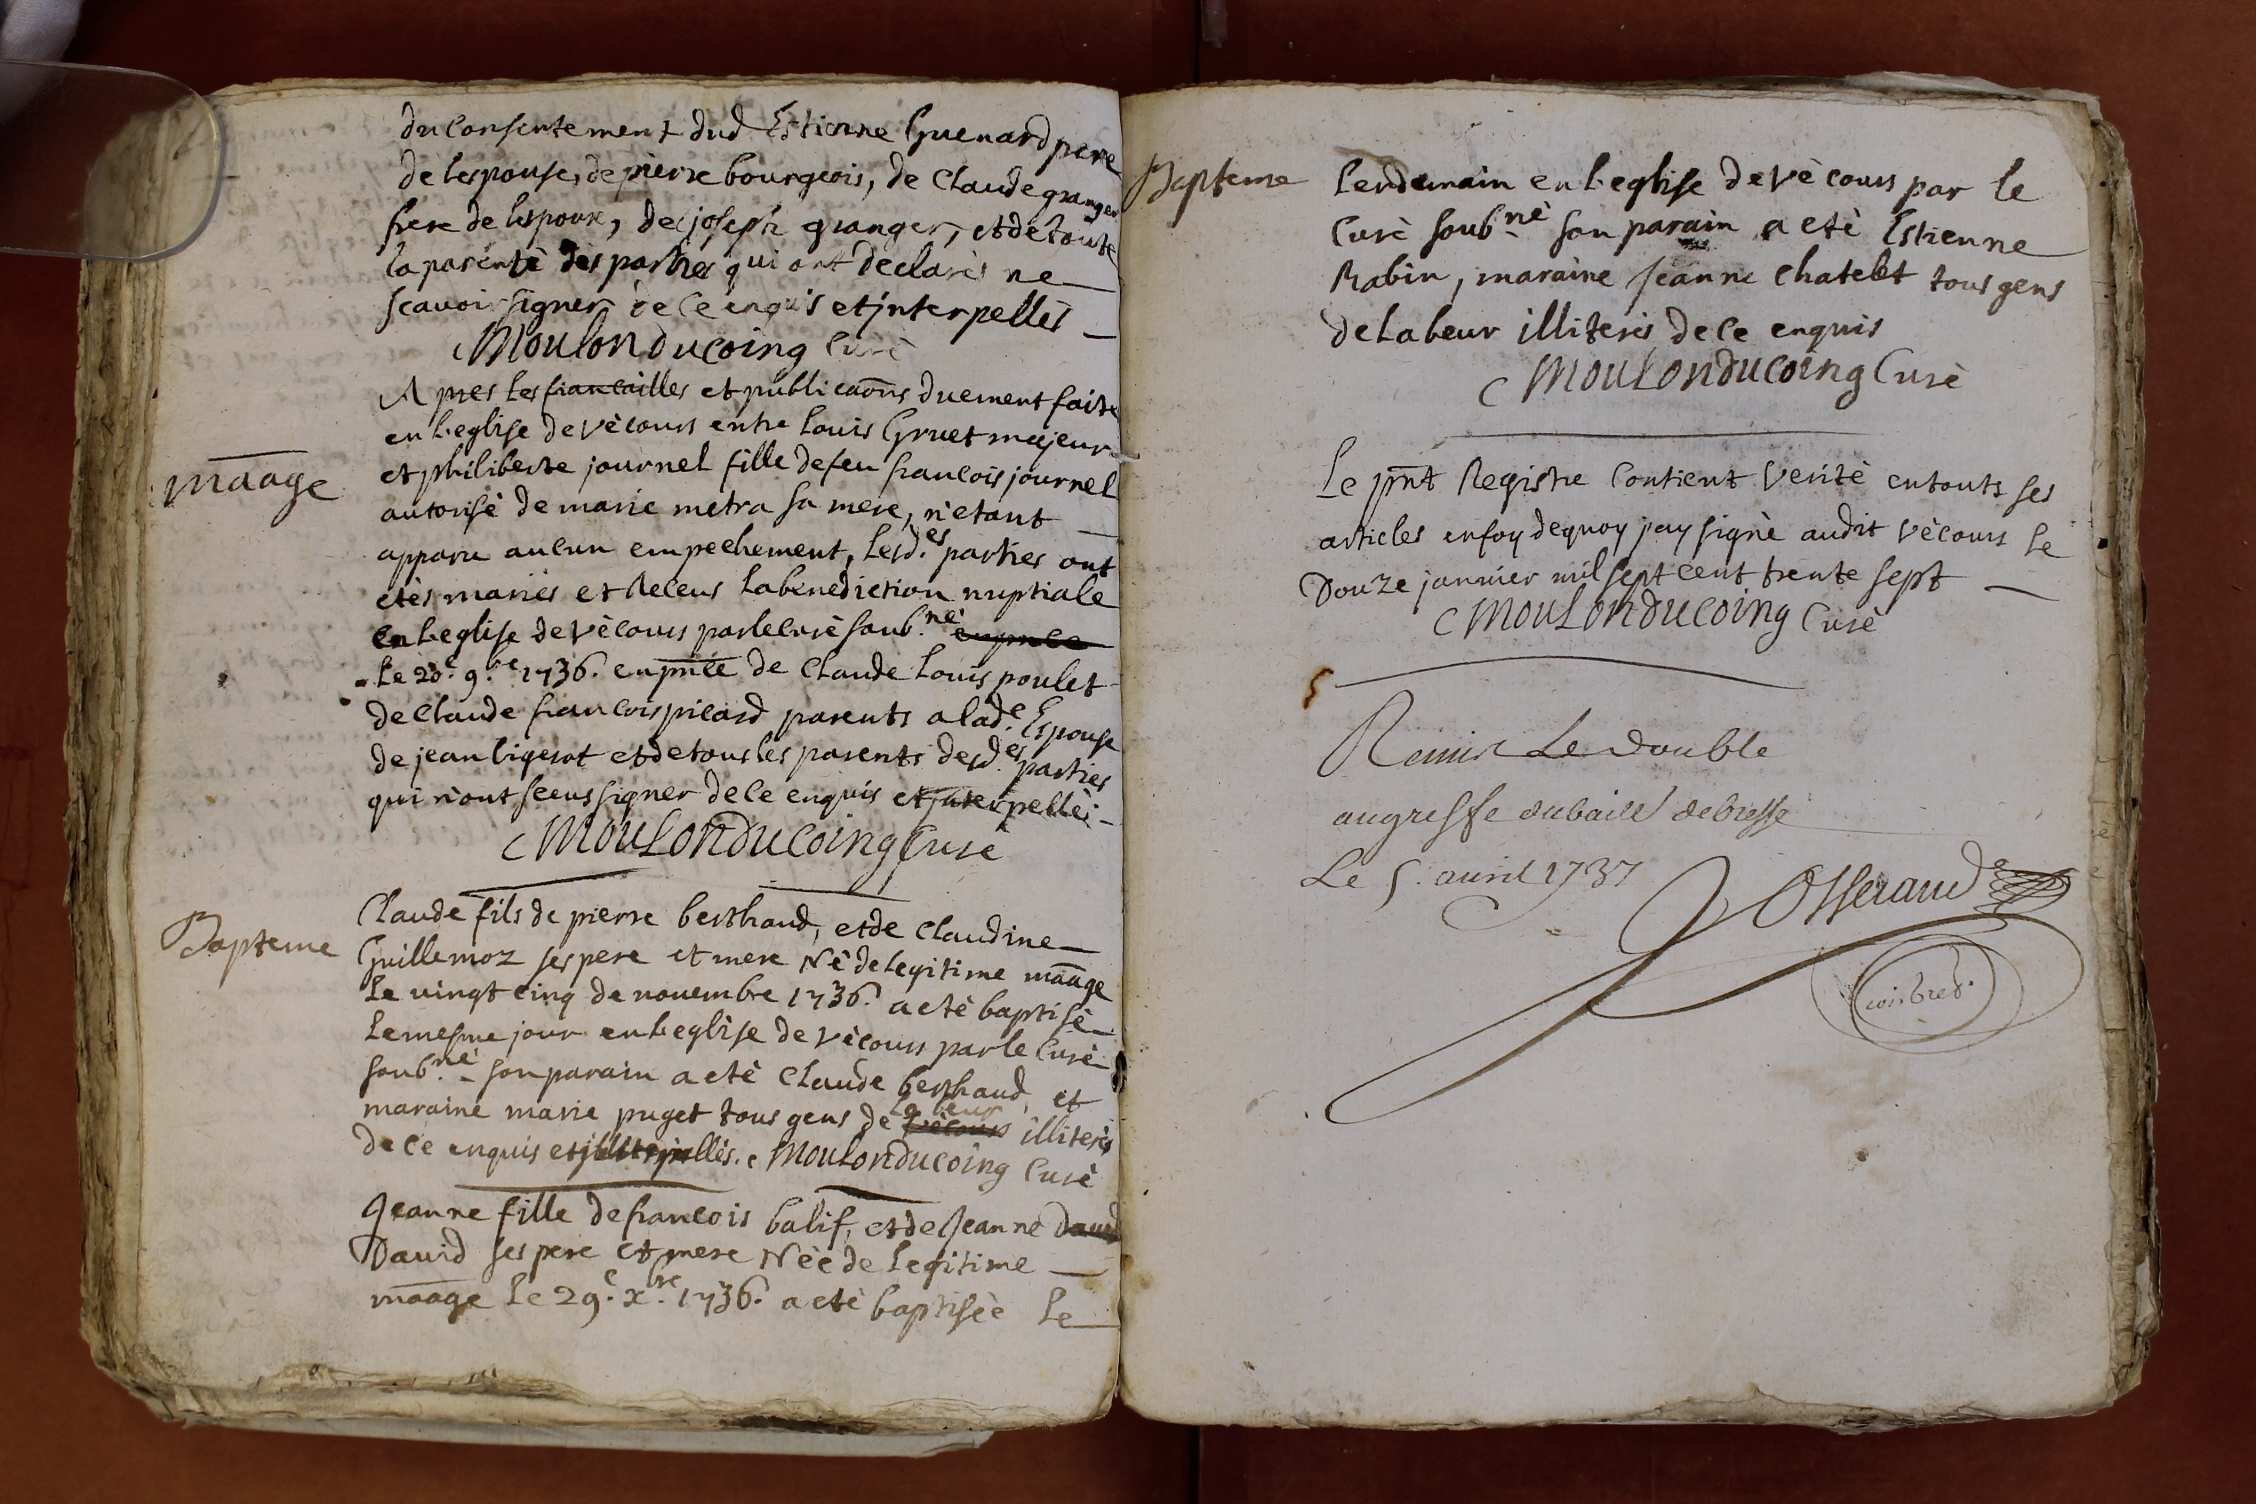 du Consentement dud Estienne Guenard pere
de lespouse, de pierre bourgeois, de Claude granger
frere de lespoux, de joseph granger, et de toute
la parentè des parties qui ont declarès ne
scavoir signer de ce enquis et jnterpellès
Moulonducoing Curè
Apres les fiancailles et publicaons duement faite
en l'eglise de vècours entre Louis Gruet majeur
maage
et philiberte journel fille de feu francois journel
autorisè de marie metra sa mere, n'etant
apparu aucun empechement, lesd.es parties ont
etès mariès et Receus la benediction nuptiale
en l'eglise de vècours par le Curè soub.nè
Le 20.e 9.re 1736. en pnce de Claude Louis poulet
de Claude francois picard parents a lad.e Espouse
de jean ligerot et de tous les parents desd.es parties
qui n'ont sceus signer de ce enquis et jnterpellès
Moulonducoing Curè
Claude fils de pierre berthaud, et de Claudine
Bapteme
Guillemoz ses pere et mere Nè de legitime maage
Le vingt cinq de novembre 1736. a etè baptisè
Le mesme jour en l'eglise de vècours par le Curè
soub.nè son parain a etè Claude berthaud, et
maraine marie puget tous gens de vècours labeur illiterès
de ce enquis et jnterpellès. Moulonducoing Curè
Jeanne fille de francois balif, et de Jeanne David
David ses pere et mere Nèe de legitime
maage le 29.e x.bre 1736. a etè baptisèe le
Bapteme
lendemain en l'eglise de vècours par le
Curè soub.nè son parain a etè Estienne
Rabin, maraine Jeanne Chatelet tous gens
de labeur illiterès de ce enquis
Moulonducoing Curè
Le pnt Registre Contient Veritè en touts ses
articles en foy de quoy jay signè audit vècours le
Douze janvier mil sept cent trente sept
Moulonducoing Curè
Remis Le double
au greffe du baill de bresse
Le 5. avril 1737